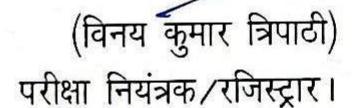 (विनय कुमार त्रिपाठी)
परीक्षा नियंत्रक/रजिस्ट्रार।